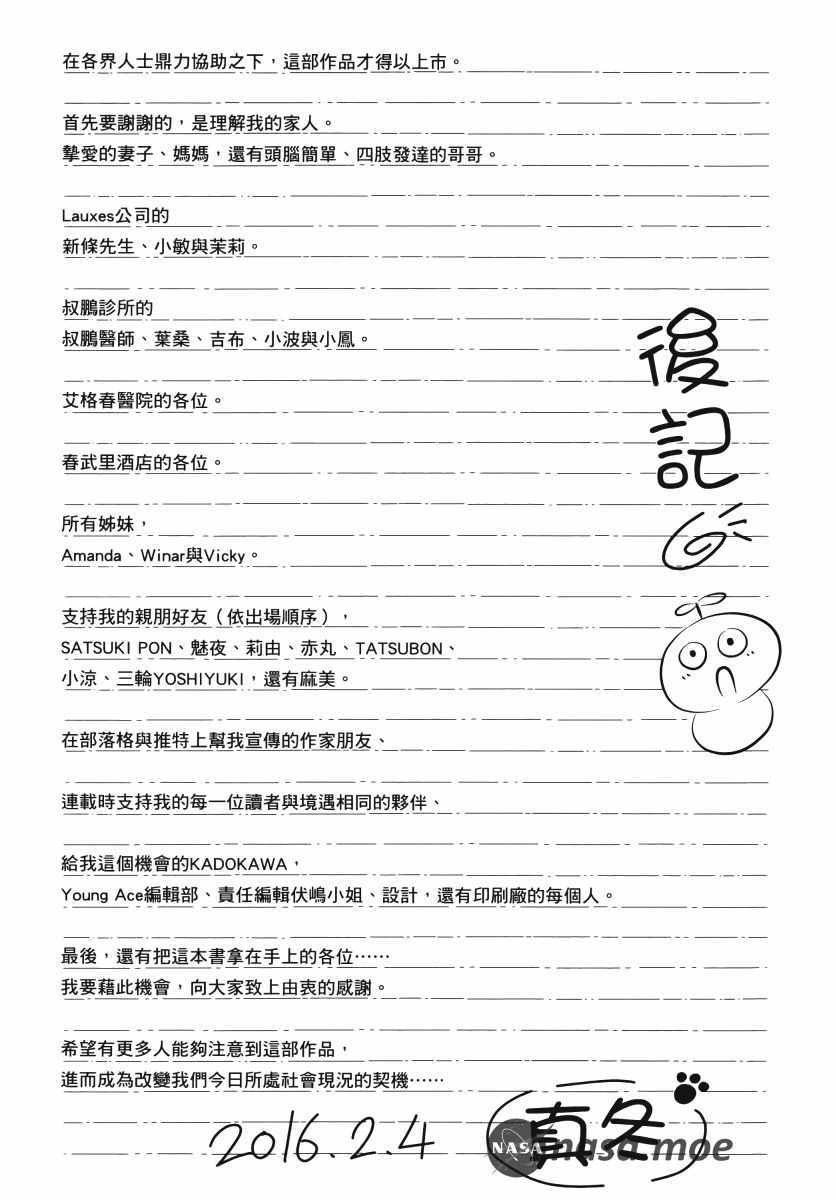 在各界人士鼎力協助之下，這部作品才得以上市。
首先要謝謝的，是理解我的家人。
摯愛的妻子、媽媽，還有頭腦簡單、四肢發達的哥哥。
Lauxes公司的
新條先生、小敏與茉莉。
叔鵬診所的
叔鵬醫師、葉桑、吉布、小波與小鳳。
艾格春醫院的各位。
春武里酒店的各位。
所有姊妹，
Amanda、Winar與Vicky。
支持我的親朋好友（依出場順序），
SATSUKI PON、魅夜、莉由、赤丸、TATSUBON、
小涼、三輪YOSHIYUKI，還有麻美。
在部落格與推特上幫我宣傳的作家朋友、
連載時支持我的每一位讀者與境遇相同的夥伴、
給我這個機會的KADOKAWA，
Young Ace編輯部、責任編輯伏嶋小姐、設計，還有印刷廠的每個人。
最後，還有把這本書拿在手上的各位……
我要藉此機會，向大家致上由衷的感謝。
希望有更多人能夠注意到這部作品，
進而成為改變我們今日所處社會現況的契機……
後記
2016.2.4
真冬
NASA nasa moe